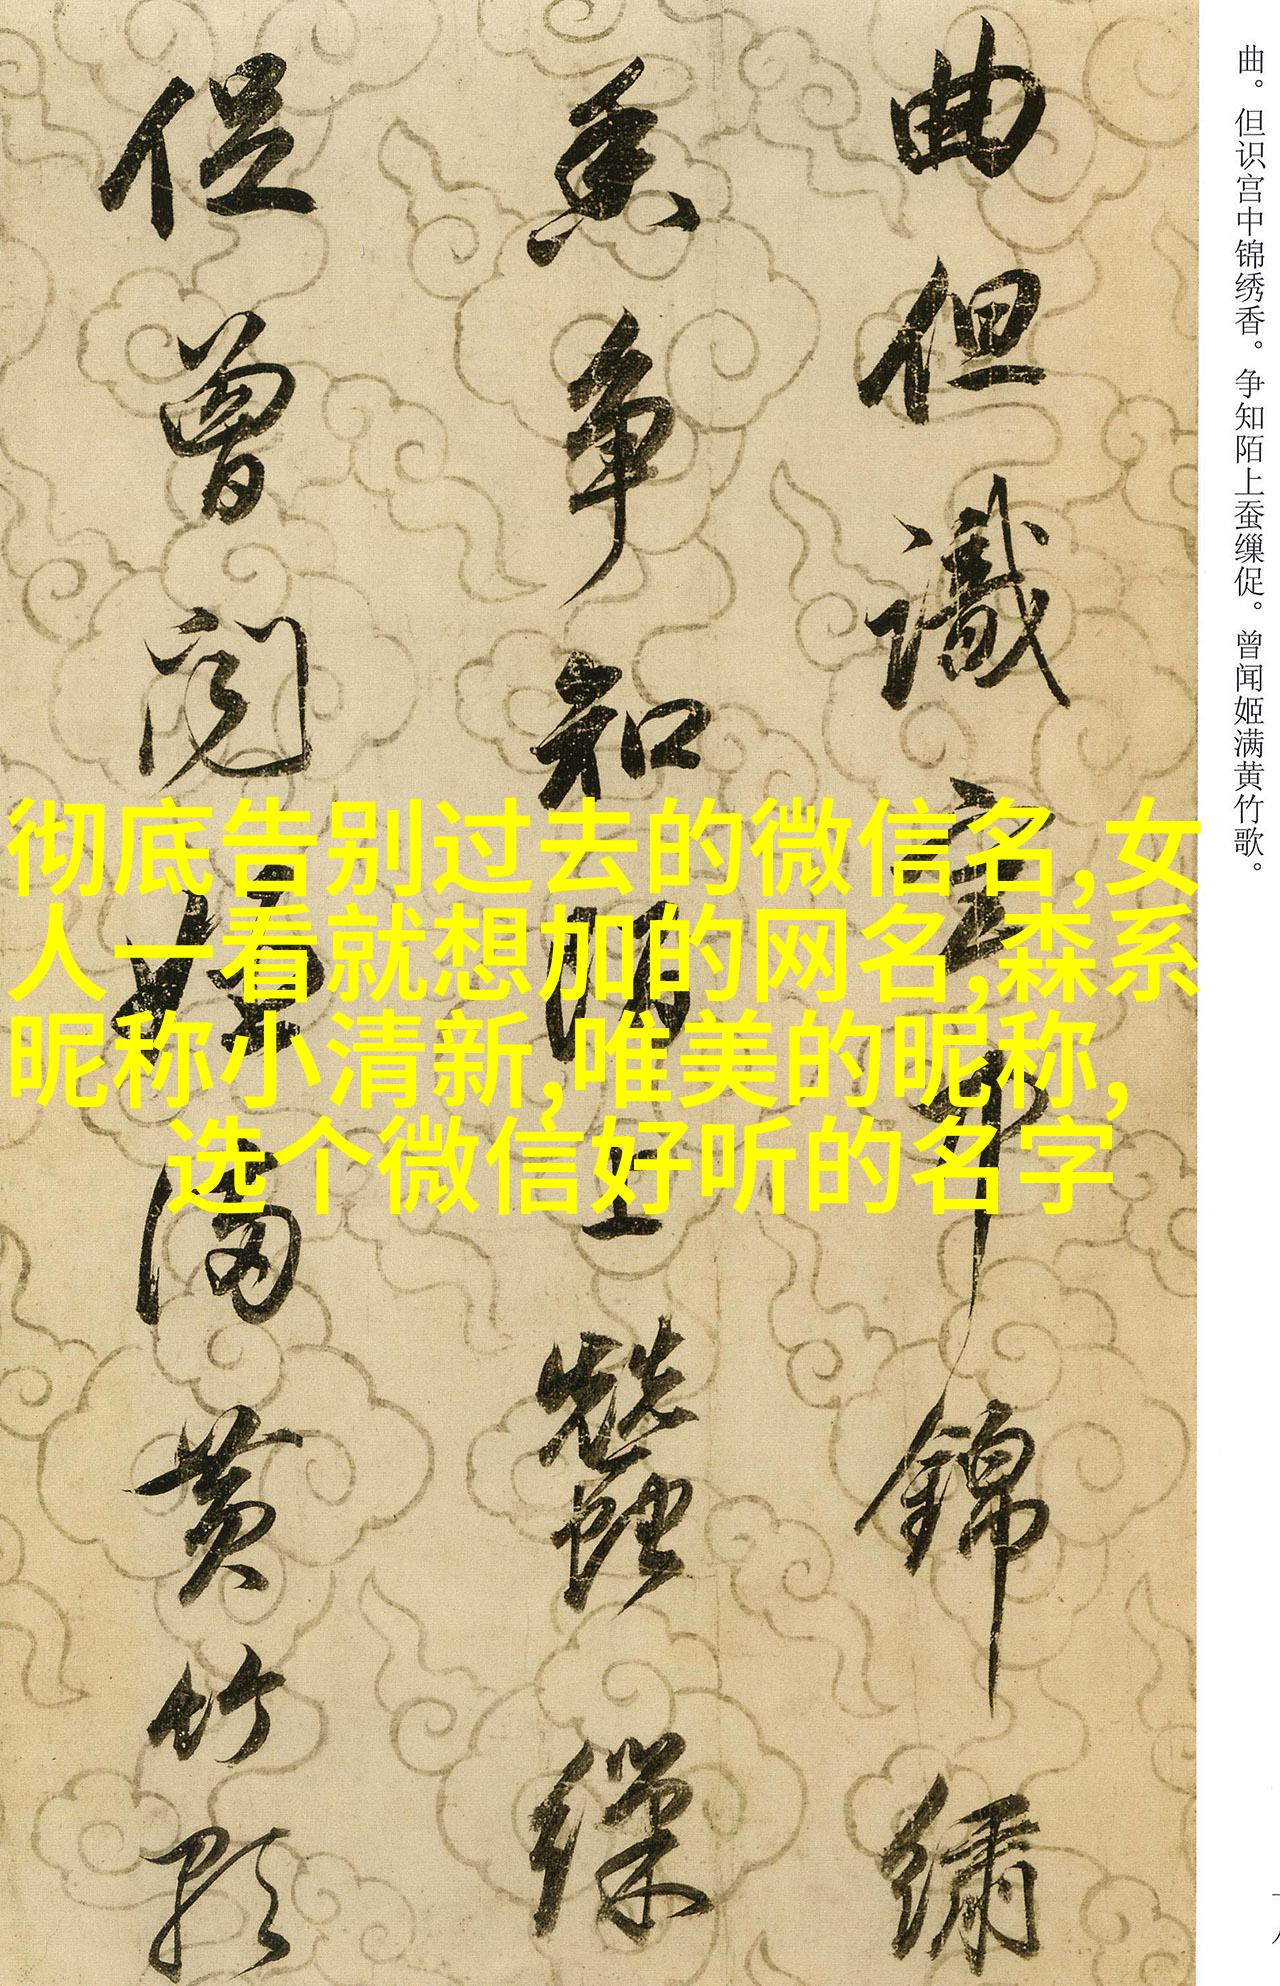 曲但識宫中錦繡
香争知陌上蠶繅
促曾闻姬满黄竹歌
曲。但识宫中锦绣香。争知陌上蚕缫促。曾闻姬满黄竹歌。
彻底告别过去的微信名,女
人一看就想加的网名,森系
昵称小清新,唯美的昵称,
选个微信好听的名字